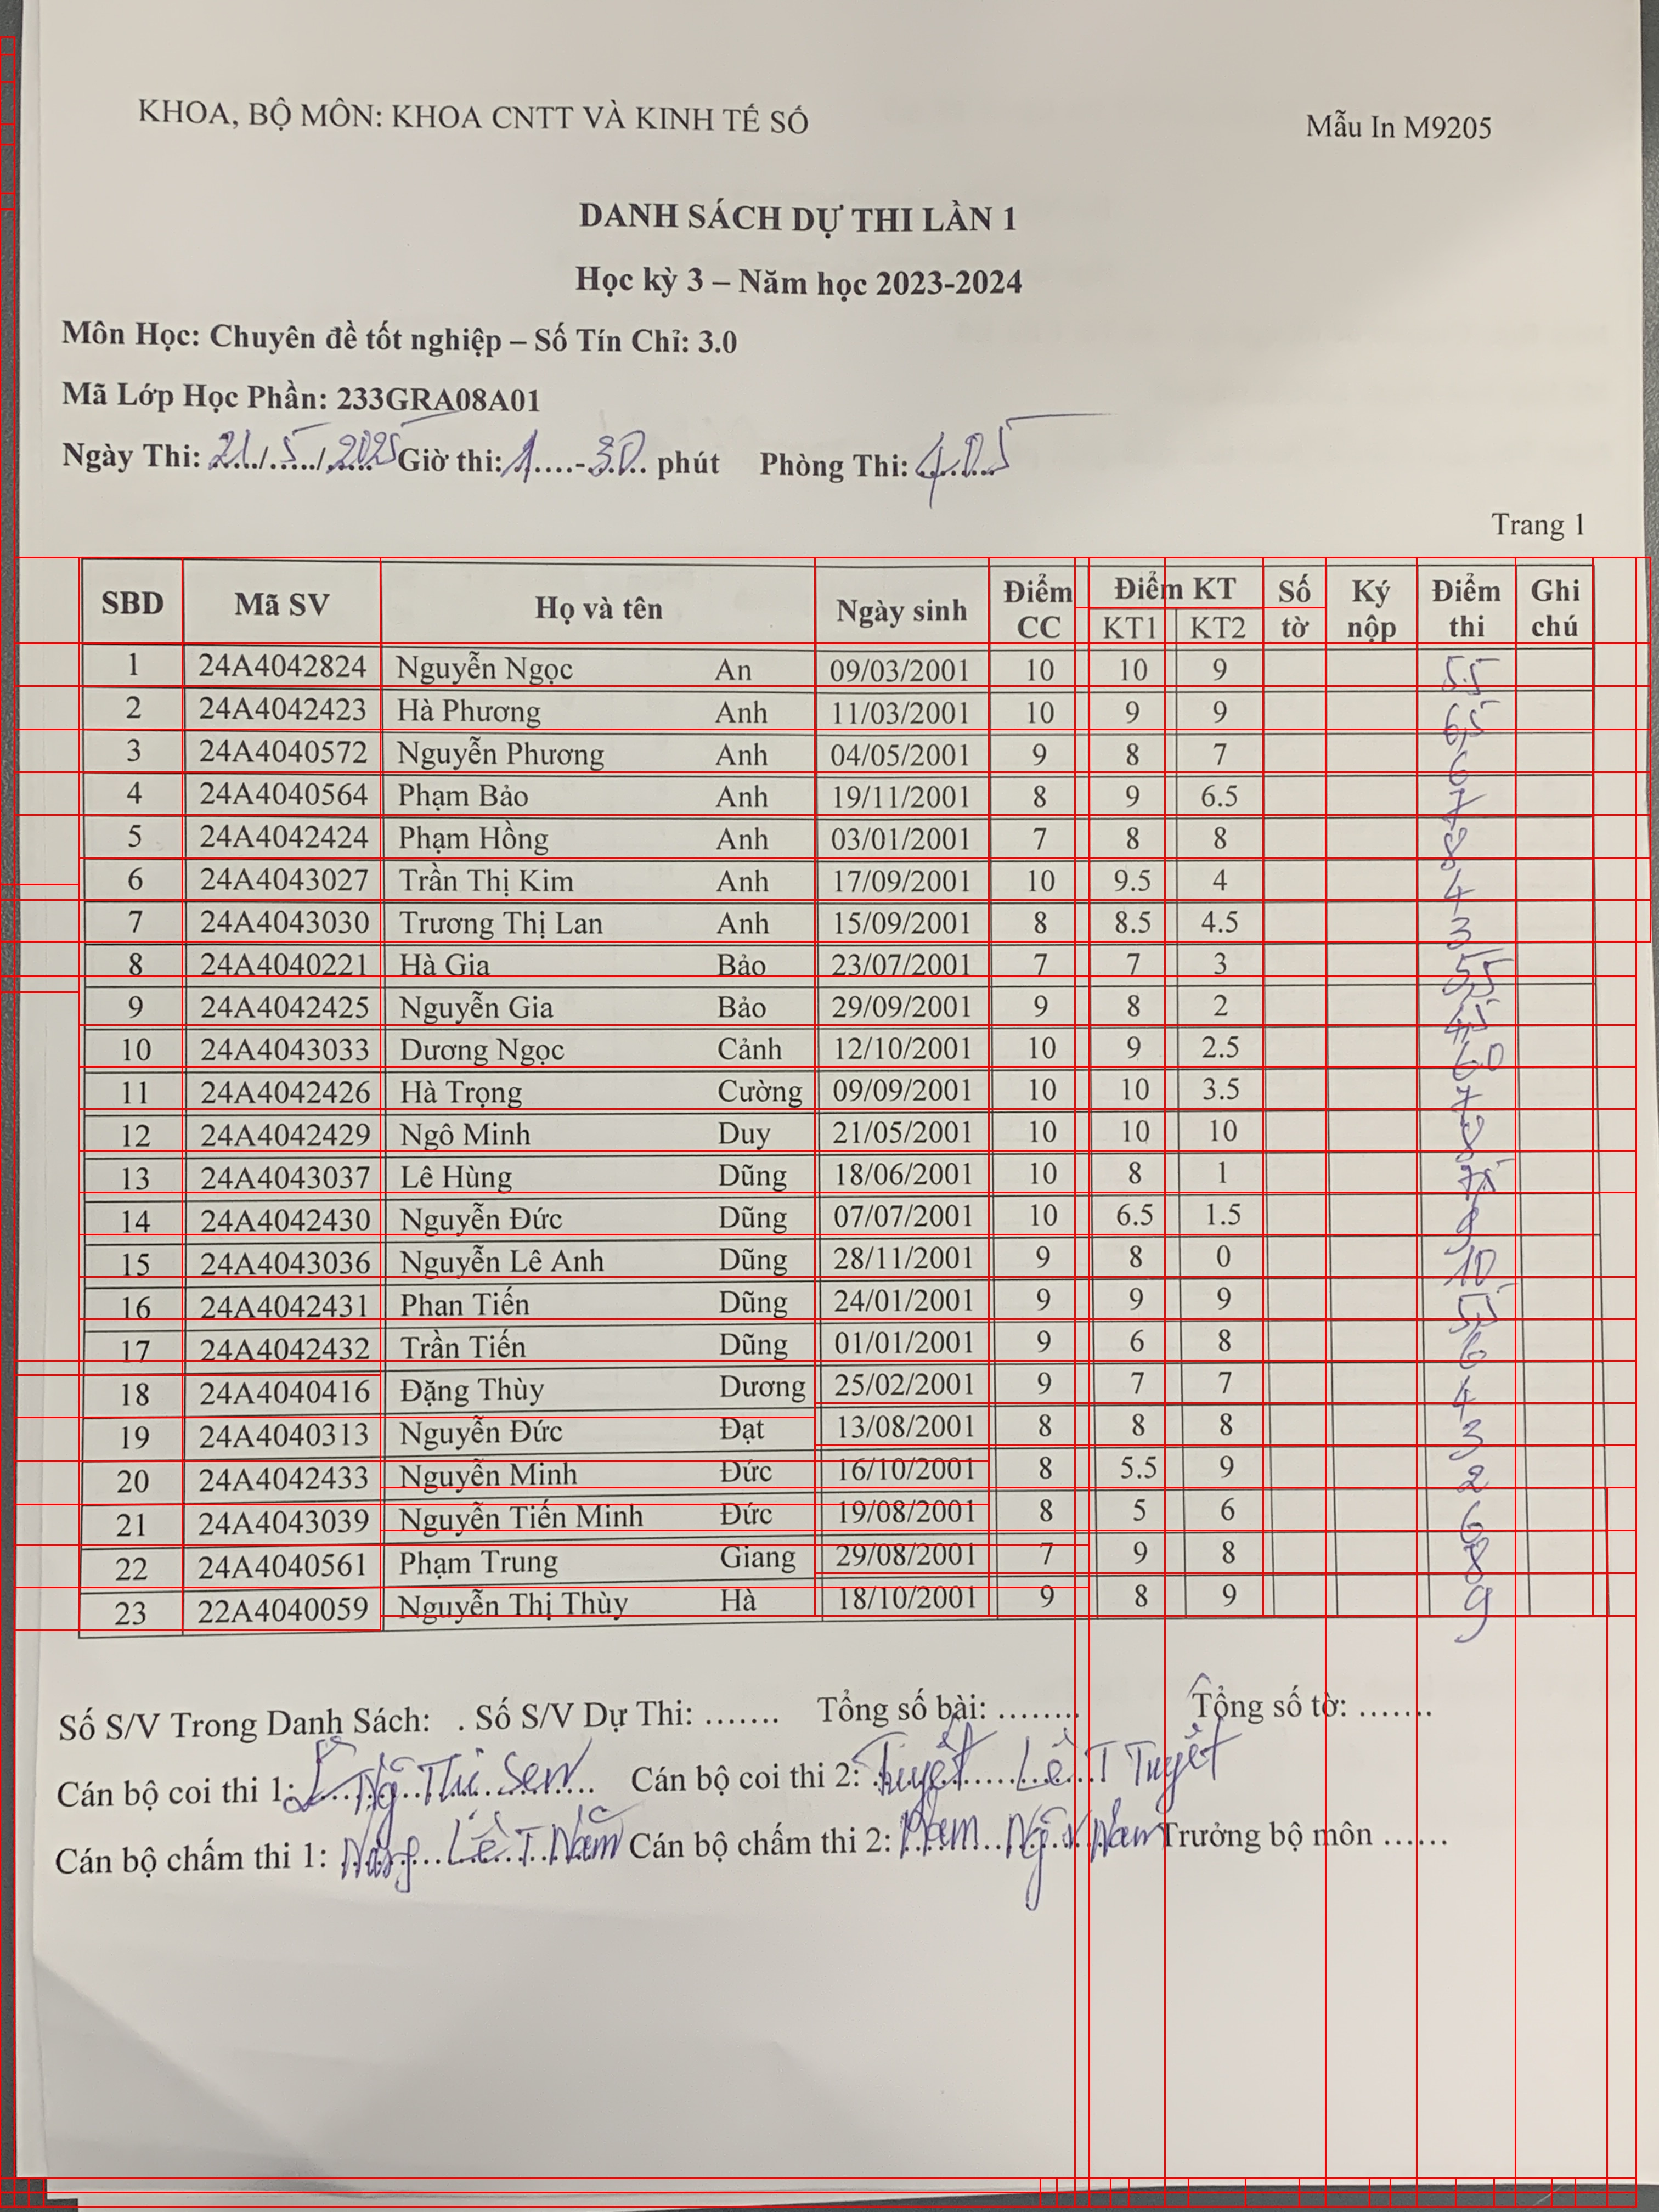 KHOA, BỘ MÔN: KHOA CNTT VÀ KINH TẾ SỐ Mẫu In M9205
DANH SÁCH DỰ THI LẦN 1
Học kỳ 3 – Năm học 2023-2024
Môn Học: Chuyên đề tốt nghiệp – Số Tín Chỉ: 3.0
Mã Lớp Học Phần: 233GRA08A01
Ngày Thi: 21/5/2025 Giờ thi: 1 - 30 phút Phòng Thi: 405
Trang 1
SBD Mã SV Họ và tên Ngày sinh Điểm CC Điểm KT KT1 KT2 Số tờ Ký nộp Điểm thi Ghi chú
1 24A4042824 Nguyễn Ngọc An 09/03/2001 10 10 9 5.5
2 24A4042423 Hà Phương Anh 11/03/2001 10 9 9 6,5
3 24A4040572 Nguyễn Phương Anh 04/05/2001 9 8 7 6
4 24A4040564 Phạm Bảo Anh 19/11/2001 8 9 6.5 7
5 24A4042424 Phạm Hồng Anh 03/01/2001 7 8 8 8
6 24A4043027 Trần Thị Kim Anh 17/09/2001 10 9.5 4 4
7 24A4043030 Trương Thị Lan Anh 15/09/2001 8 8.5 4.5 3
8 24A4040221 Hà Gia Bảo 23/07/2001 7 7 3 5,5
9 24A4042425 Nguyễn Gia Bảo 29/09/2001 9 8 2 4,5
10 24A4043033 Dương Ngọc Cảnh 12/10/2001 10 9 2.5 6.0
11 24A4042426 Hà Trọng Cường 09/09/2001 10 10 3.5 7
12 24A4042429 Ngô Minh Duy 21/05/2001 10 10 10 8
13 24A4043037 Lê Hùng Dũng 18/06/2001 10 8 1 7,5
14 24A4042430 Nguyễn Đức Dũng 07/07/2001 10 6.5 1.5 9
15 24A4043036 Nguyễn Lê Anh Dũng 28/11/2001 9 8 0 10
16 24A4042431 Phan Tiến Dũng 24/01/2001 9 9 9 5,5
17 24A4042432 Trần Tiến Dũng 01/01/2001 9 6 8 6
18 24A4040416 Đặng Thùy Dương 25/02/2001 9 7 7 4
19 24A4040313 Nguyễn Đức Đạt 13/08/2001 8 8 8 3
20 24A4042433 Nguyễn Minh Đức 16/10/2001 8 5.5 9 2
21 24A4043039 Nguyễn Tiến Minh Đức 19/08/2001 8 5 6 6
22 24A4040561 Phạm Trung Giang 29/08/2001 7 9 8 8
23 22A4040059 Nguyễn Thị Thùy Hà 18/10/2001 9 8 9 9
Số S/V Trong Danh Sách: . Số S/V Dự Thi: ....... Tổng số bài: ........ Tổng số tờ: .......
Cán bộ coi thi 1: Ngô Thi Sen Cán bộ coi thi 2: Tuyết Lê T Tuyết
Cán bộ chấm thi 1: Lê T Năm Cán bộ chấm thi 2: Nam Ngô V Nam Trưởng bộ môn ......